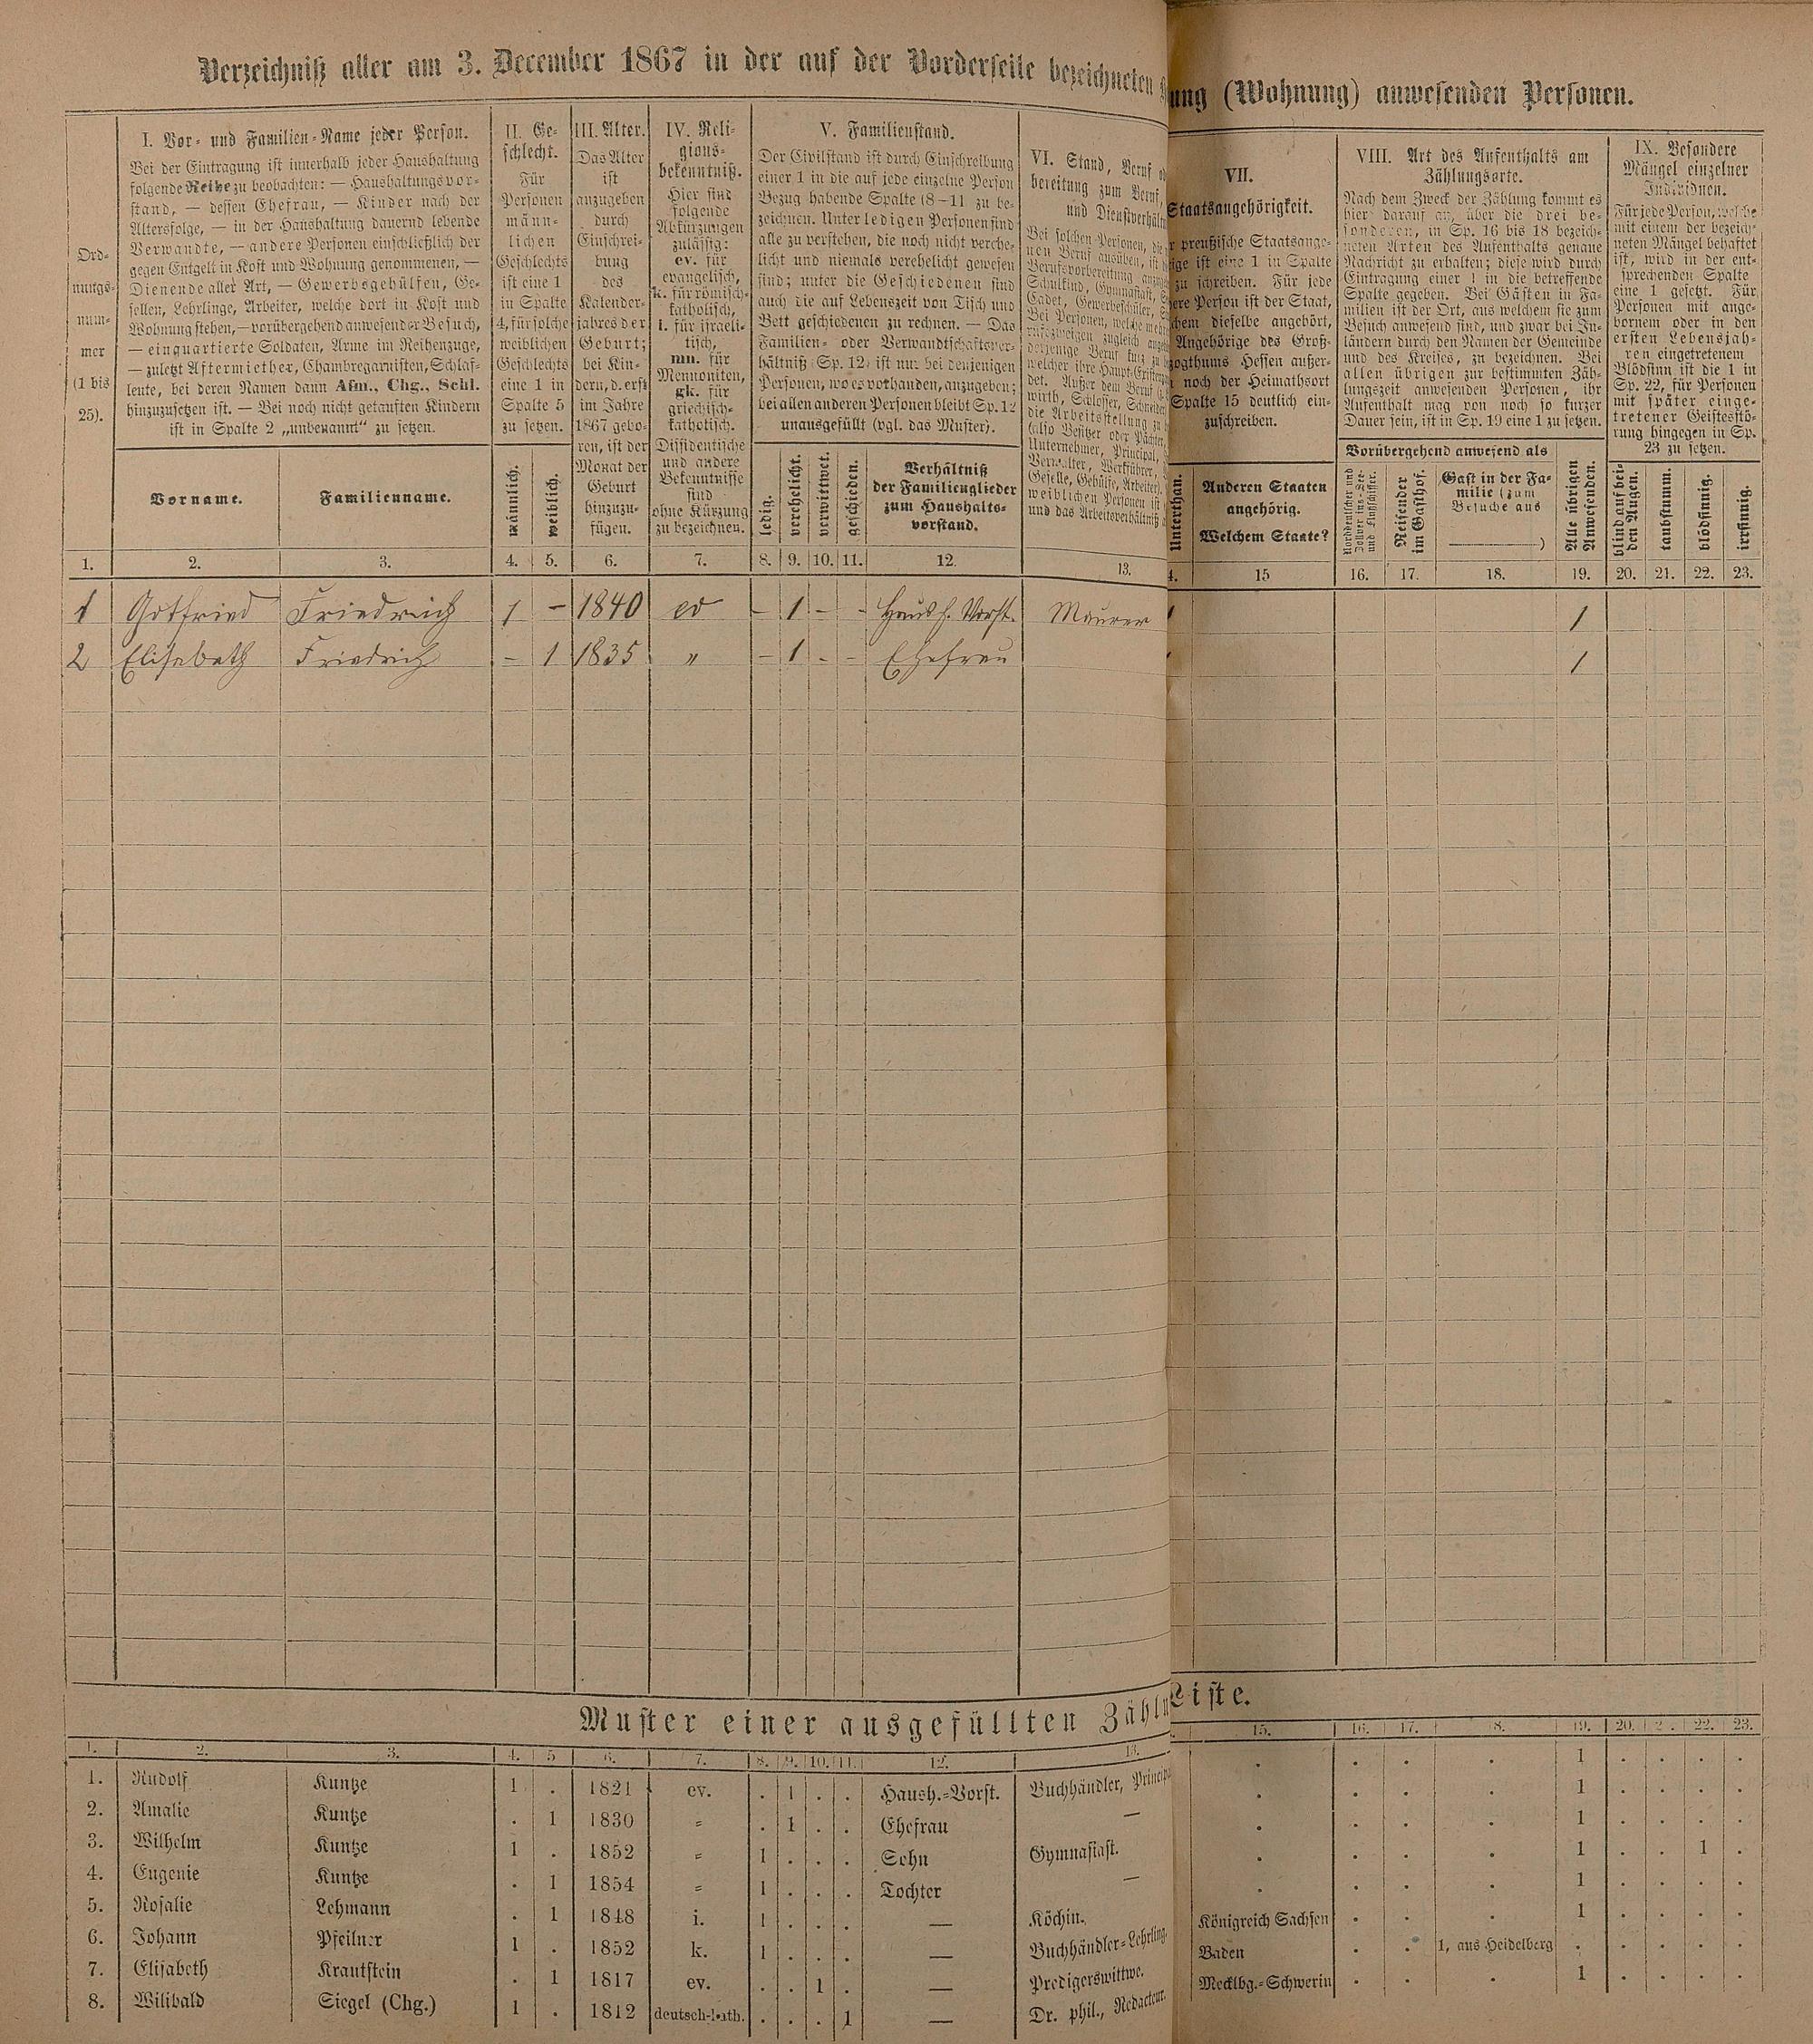 Verzeichniß aller am 3. December 1867 in der auf der Vorderseite bezeichneten
ung (Wohnung) anwesenden Personen.
Ord-
nungs-
num-
mer
(1 bis
25).
I. Vor- und Familien-Name jeder Person.
Bei der Eintragung ist innerhalb jeder Haushaltung
folgende Reihe zu beobachten: — Haushaltungsvor-
stand, — dessen Ehefrau, — Kinder nach der
Altersfolge, — in der Haushaltung dauernd lebende
Verwandte, — andere Personen einschließlich der
gegen Entgelt in Kost und Wohnung genommenen, —
Dienende aller Art, — Gewerbsgehülfen, Ge-
sellen, Lehrlinge, Arbeiter, welche dort in Kost und
Wohnung stehen, — vorübergehend anwesender Besuch,
— einquartierte Soldaten, Arme im Reihenzuge,
— zuletzt Aftermiether, Chambregarnisten, Schlaf-
leute, bei deren Namen dann Afm., Chg., Schl.
hinzuzusetzen ist. — Bei noch nicht getauften Kindern
ist in Spalte 2 „unbenannt“ zu setzen.
Vorname.
Familienname.
II. Ge-
schlecht.
Für
Personen
männ-
lichen
Geschlechts
ist eine 1
in Spalte
4, für solche
weiblichen
Geschlechts
eine 1 in
Spalte 5
zu setzen.
männlich.
weiblich.
III. Alter.
Das Alter
ist
anzugeben
durch
Einschrei-
bung
des
Kalender-
jahres der
Geburt;
bei Kin-
dern, d. erst
im Jahre
1867 gebo-
ren, ist der
Monat der
Geburt
hinzuzu-
fügen.
IV. Reli-
gions-
bekenntniß.
Hier sind
folgende
Abkürzungen
zulässig:
ev. für
evangelisch,
k. für römisch-
katholisch,
i. für israeli-
tisch,
mn. für
Mennoniten,
gk. für
griechisch-
katholisch.
Dissidentische
und andere
Bekenntnisse
sind
ohne Kürzung
zu bezeichnen.
V. Familienstand.
Der Civilstand ist durch Einschreibung
einer 1 in die auf jede einzelne Person
Bezug habende Spalte (8–11 zu be-
zeichnen. Unter ledigen Personen sind
alle zu verstehen, die noch nicht verehe-
licht und niemals verehelicht gewesen
sind; unter die Geschiedenen sind
auch die auf Lebenszeit von Tisch und
Bett geschiedenen zu rechnen. — Das
Familien- oder Verwandtschaftsver-
hältniß (Sp. 12) ist nur bei denjenigen
Personen, wo es vorhanden, anzugeben;
bei allen anderen Personen bleibt Sp. 12
unausgefüllt (vgl. das Muster).
ledig.
verehelicht.
verwittwet.
geschieden.
Verhältniß
der Familienglieder
zum Haushalts-
vorstand.
VI. Stand, Beruf
bereitung zum Beruf,
und Dienstverhält
Bei solchen Personen, die
nen Beruf ausüben, ist
Berufsvorbereitung
Schulkind, Gymnasiast,
Cadet, Gewerbeschüler,
Bei Personen, welche
rufszweigen zugleich
derjenige Beruf kurz zu
welcher ihre Haupt-
det. Außer dem Beruf
wirth, Schlosser, Schneider
die Arbeitsstellung zu
(also Besitzer oder Pächter,
Unternehmer, Principal,
Verwalter, Werkführer,
Geselle, Gehülfe, Arbeiter).
weiblichen Personen ist
und das Arbeitsverhältniß
VII.
Staatsangehörigkeit.
r preußische Staatsange-
ige ist eine 1 in Spalte
zu schreiben. Für jede
ere Person ist der Staat,
chem dieselbe angehört,
Angehörige des Groß-
zogthums Hessen außer-
noch der Heimathsort
Spalte 15 deutlich ein-
zuschreiben.
Unterthan.
Anderen Staaten
angehörig.
Welchem Staate?
VIII. Art des Aufenthalts am
Zählungsorte.
Nach dem Zweck der Zählung kommt es
hier darauf an, über die drei be-
sonderen, in Sp. 16 bis 18 bezeich-
neten Arten des Aufenthalts genaue
Nachricht zu erhalten; diese wird durch
Eintragung einer 1 in die betreffende
Spalte gegeben. Bei Gästen in Fa-
milien ist der Ort, aus welchem sie zum
Besuch anwesend sind, und zwar bei In-
ländern durch den Namen der Gemeinde
und des Kreises, zu bezeichnen. Bei
allen übrigen zur bestimmten Zäh-
lungszeit anwesenden Personen, ihr
Aufenthalt mag von noch so kurzer
Dauer sein, ist in Sp. 19 eine 1 zu setzen.
Vorübergehend anwesend als
Norddeutscher und
Zollver eins-See-
und Flußschiffer.
Reisender
im Gasthof.
Gast in der Fa-
milie (zum
Besuche aus
)
Alle übrigen
Anwesenden.
IX. Besondere
Mängel einzelner
Individuen.
Für jede Person, welche
mit einem der bezeich-
neten Mängel behaftet
ist, wird in der ent-
sprechenden Spalte
eine 1 gesetzt. Für
Personen mit ange-
bornem oder in den
ersten Lebensjah-
ren eingetretenem
Blödsinn ist die 1 in
Sp. 22, für Personen
mit später einge-
tretener Geistesstö-
rung hingegen in Sp.
23 zu setzen.
blind auf bei-
den Augen.
taubstumm.
blödsinnig.
irrsinnig.
1. 2. 3. 4. 5. 6. 7. 8. 9. 10. 11. 12. 13. 4. 15 16. 17. 18. 19. 20. 21. 22. 23.
1 Gotfried Friedrich 1 – 1840 ev – 1 – – Haush. Vorst. Maurer 1
2 Elisabeth Friedrich – 1 1835 " – 1 – – Ehefrau 1
Muster einer ausgefüllten Zähl
Liste.
1. 2. 3. 4. 5 6. 7. 8. 9. 10. 11. 12. 13. 15. 16. 17. 8. 19. 20. 2 . 22. 23.
1. Rudolf Kuntze 1 . 1821 ev. . 1 . . Haush.-Vorst. Buchhändler, Princip . . . . 1 . . . .
2. Amalie Kuntze . 1 1830 " . 1 . . Ehefrau — . . . . 1 . . . .
3. Wilhelm Kuntze 1 . 1852 " 1 . . . Sohn Gymnasiast. . . . . 1 . . 1 .
4. Eugenie Kuntze . 1 1854 " 1 . . . Tochter — . . . . 1 . . . .
5. Rosalie Lehmann . 1 1848 i. 1 . . . — Köchin. Königreich Sachsen . . . 1 . . . .
6. Johann Pfeilner 1 . 1852 k. 1 . . . — Buchhändler-Lehrling. Baden . . 1, aus Heidelberg . . . . .
7. Elisabeth Krautstein . 1 1817 ev. . . 1 . — Predigerswittwe. Mecklbg.-Schwerin . . . 1 . . . .
8. Wilibald Siegel (Chg.) 1 . 1812 deutsch-kath. . . . 1 — Dr. phil., Redacteur.